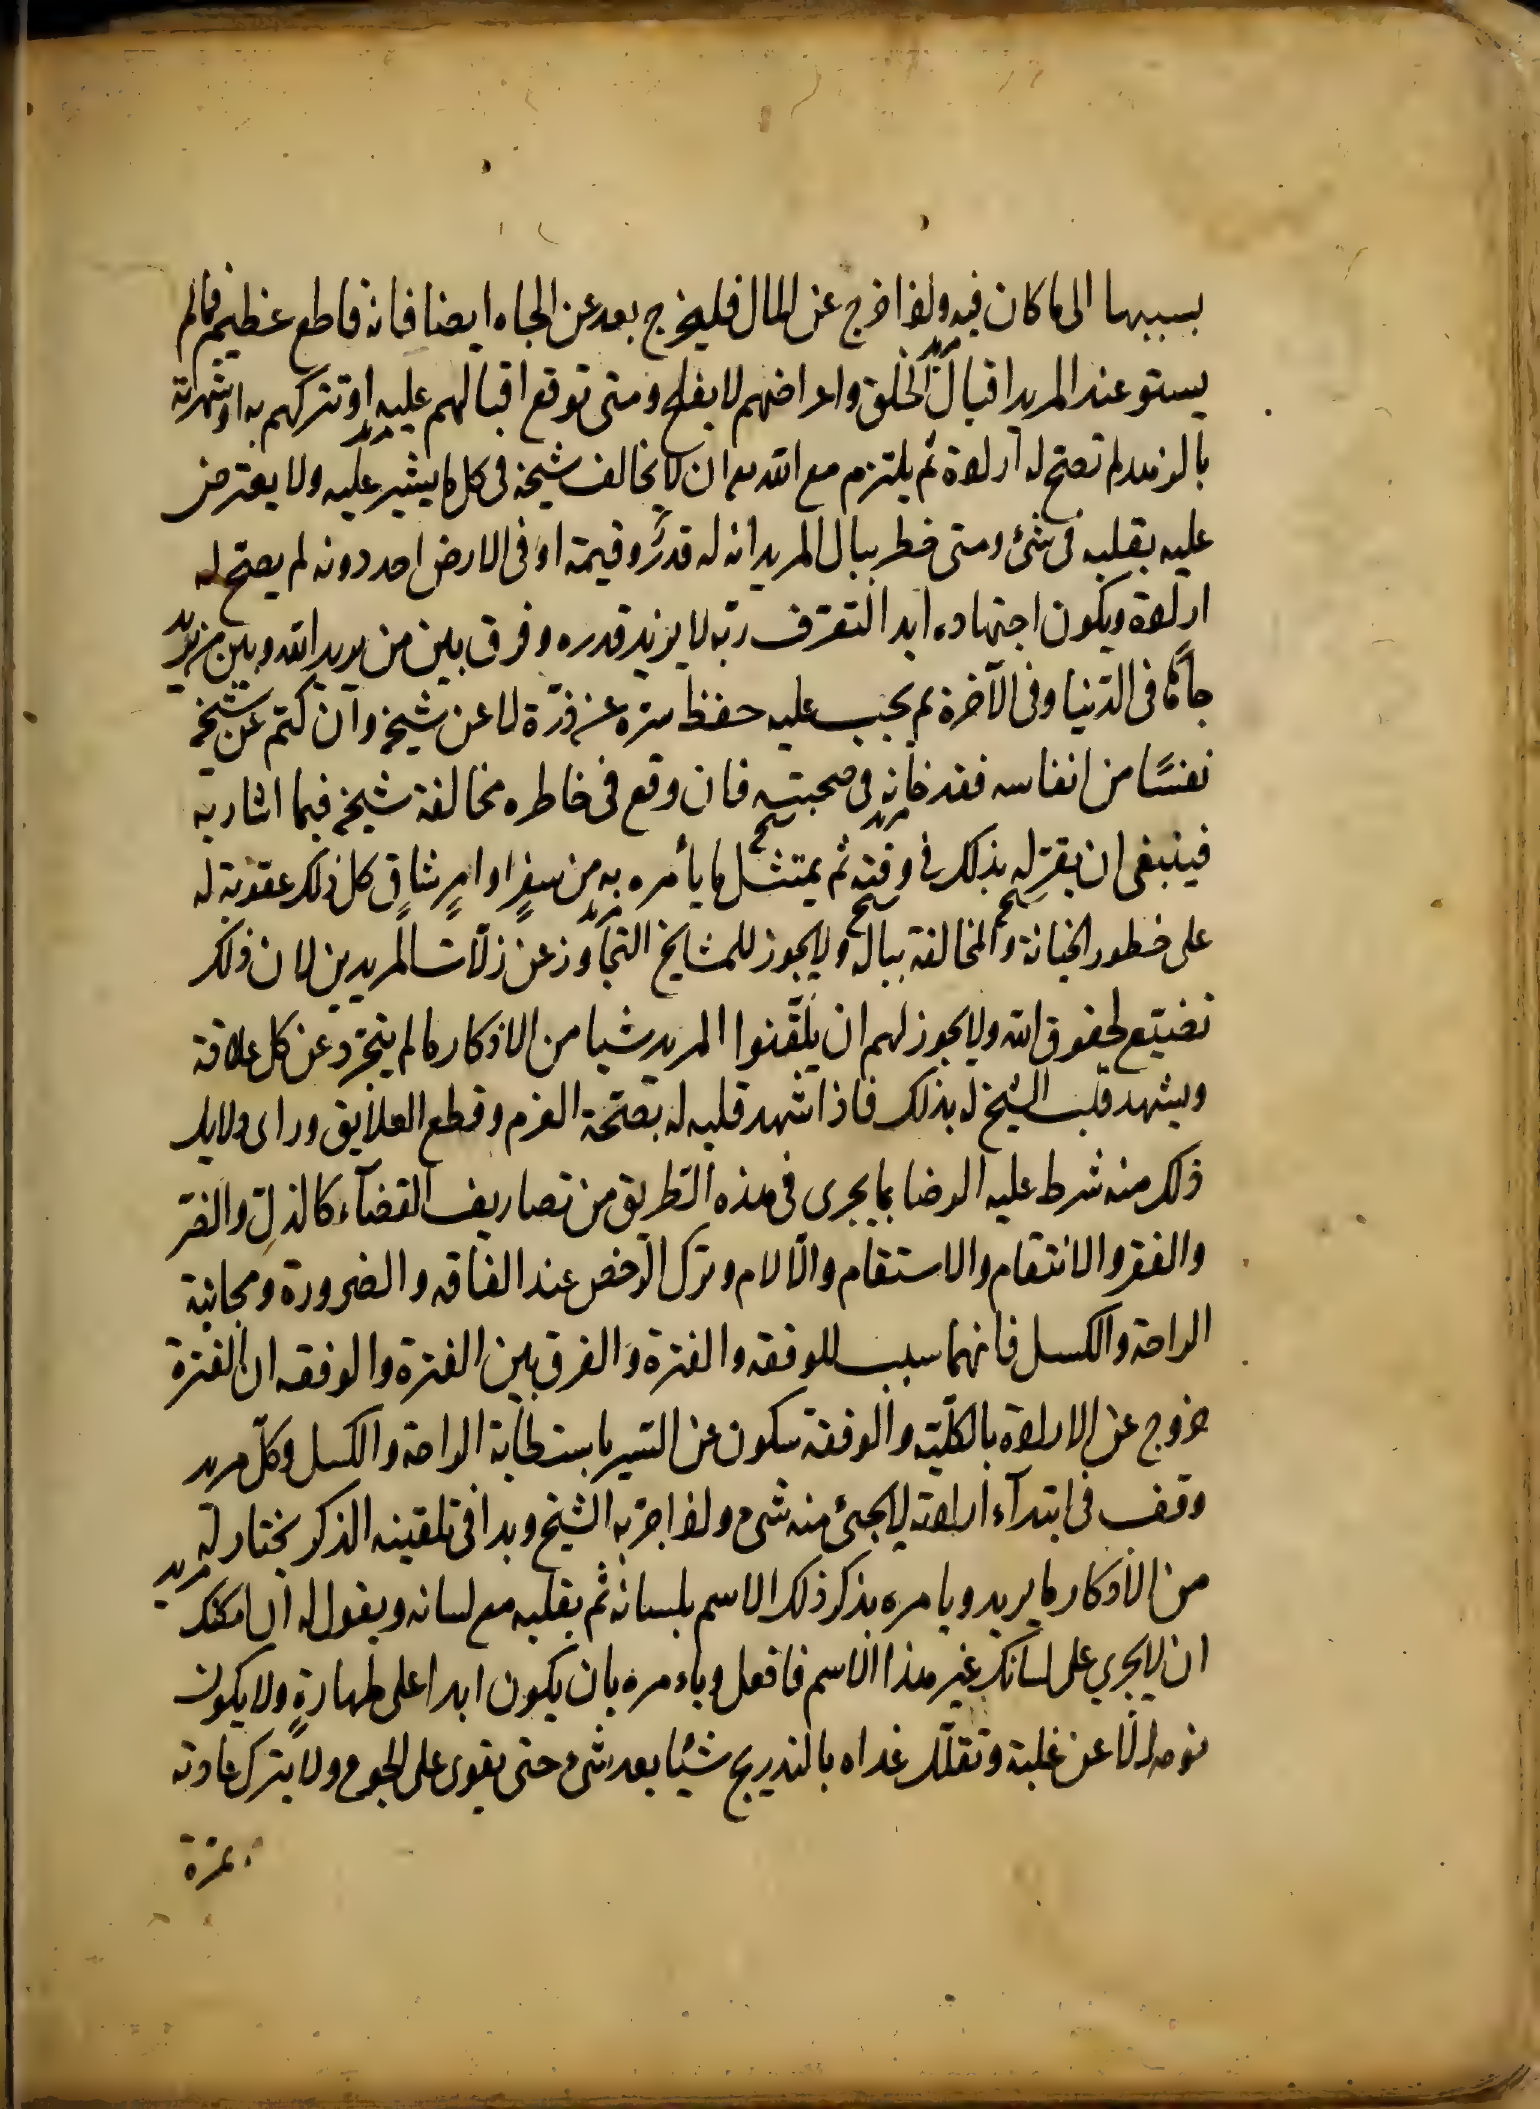 بسببها الى ما كان فيه واذا خرج عن المال فليخرج بعد عن الجاه ايضا فانه قاطع عظيم فمالم
يستو عند المريد اقبال الخلق واعراضهم لا يفلح ومتى توقع اقبالهم عليه او تبركهم به او شهرته
بالزهد لم تصح له ارادة ثم يلتزم مع الله مع ان لا يخالف شيخه فى كل ما يشير عليه ولا يعترض
عليه بقلبه فى شئ ومتى خطر ببال المريد انه له قدرٌ وقيمة او فى الارض احد دونه لم يصح له
ارادة ويكون اجتهاده ابدا لتعرّف ربّه لا يزيد قدره وفرق بين من يريد الله وبين من يريد
جاهًا فى الدّنيا وفى الآخرة ثم يجب عليه حفظ سرّه عن ذرّة الا عن شيخه وان كتم عن شيخه
نفسًا من انفاسه فقد خانه فى صحبته فان وقع فى خاطره مخالفة شيخه فيما اشار به
فينبغى ان يقرّ له بذلك فى وقته ثم يمتثل ما يأمره به من سفرٍ او امرٍ شاقٍ كل ذلك عقوبة له
على خطور الخيانة والمخالفة بباله ولا يجوز للمشايخ التجاوز عن زلّات المريدين لان ذلك
تضييع لحقوق الله ولا يجوز لهم ان يلقّنوا المريد شيا من الاذكار ما لم يتجرّد عن كل علاقة
ويشهد قلب الشيخ له بذلك فاذا شهد قلبه له بصحّة العزم وقطع العلايق وراى دلايل
ذلك منه شرط عليه الرضا بما يجرى فى هذه الطريق من تصاريف القضآء كالذلّ والضّر
والفقر والانتقام والاستقام والآلام وترك الرخص عند الفاقه والضرورة ومجانبة
الراحة والكسل فانهما سبب للوقفه والفترة والفرق بين الفترة والوقفه ان الفترة
خروج عن الارادة بالكلّية والوقفة سكون عن السّير باستطابة الراحة والكسل وكلّ مريد
وقف فى ابتدآء ارادته لا يجئ منه شىء واذا جرّبه الشيخ وبدا فى تلقينه الذكر يختار له
من الاذكار ما يريد ويامره بذكر ذلك الاسم بلسانه ثم بقلبه مع لسانه ويقول له ان امكنك
ان لا يجري على لسانك غير هذا الاسم فافعل ويامره بان يكون ابدا على طهارةٍ ولا يكون
نومه الا عن غلبة وتقلّل غداه بالتدريج شيئا بعد شىء حتى يقوى على الجوع ولا يترك عادته
بمرّة